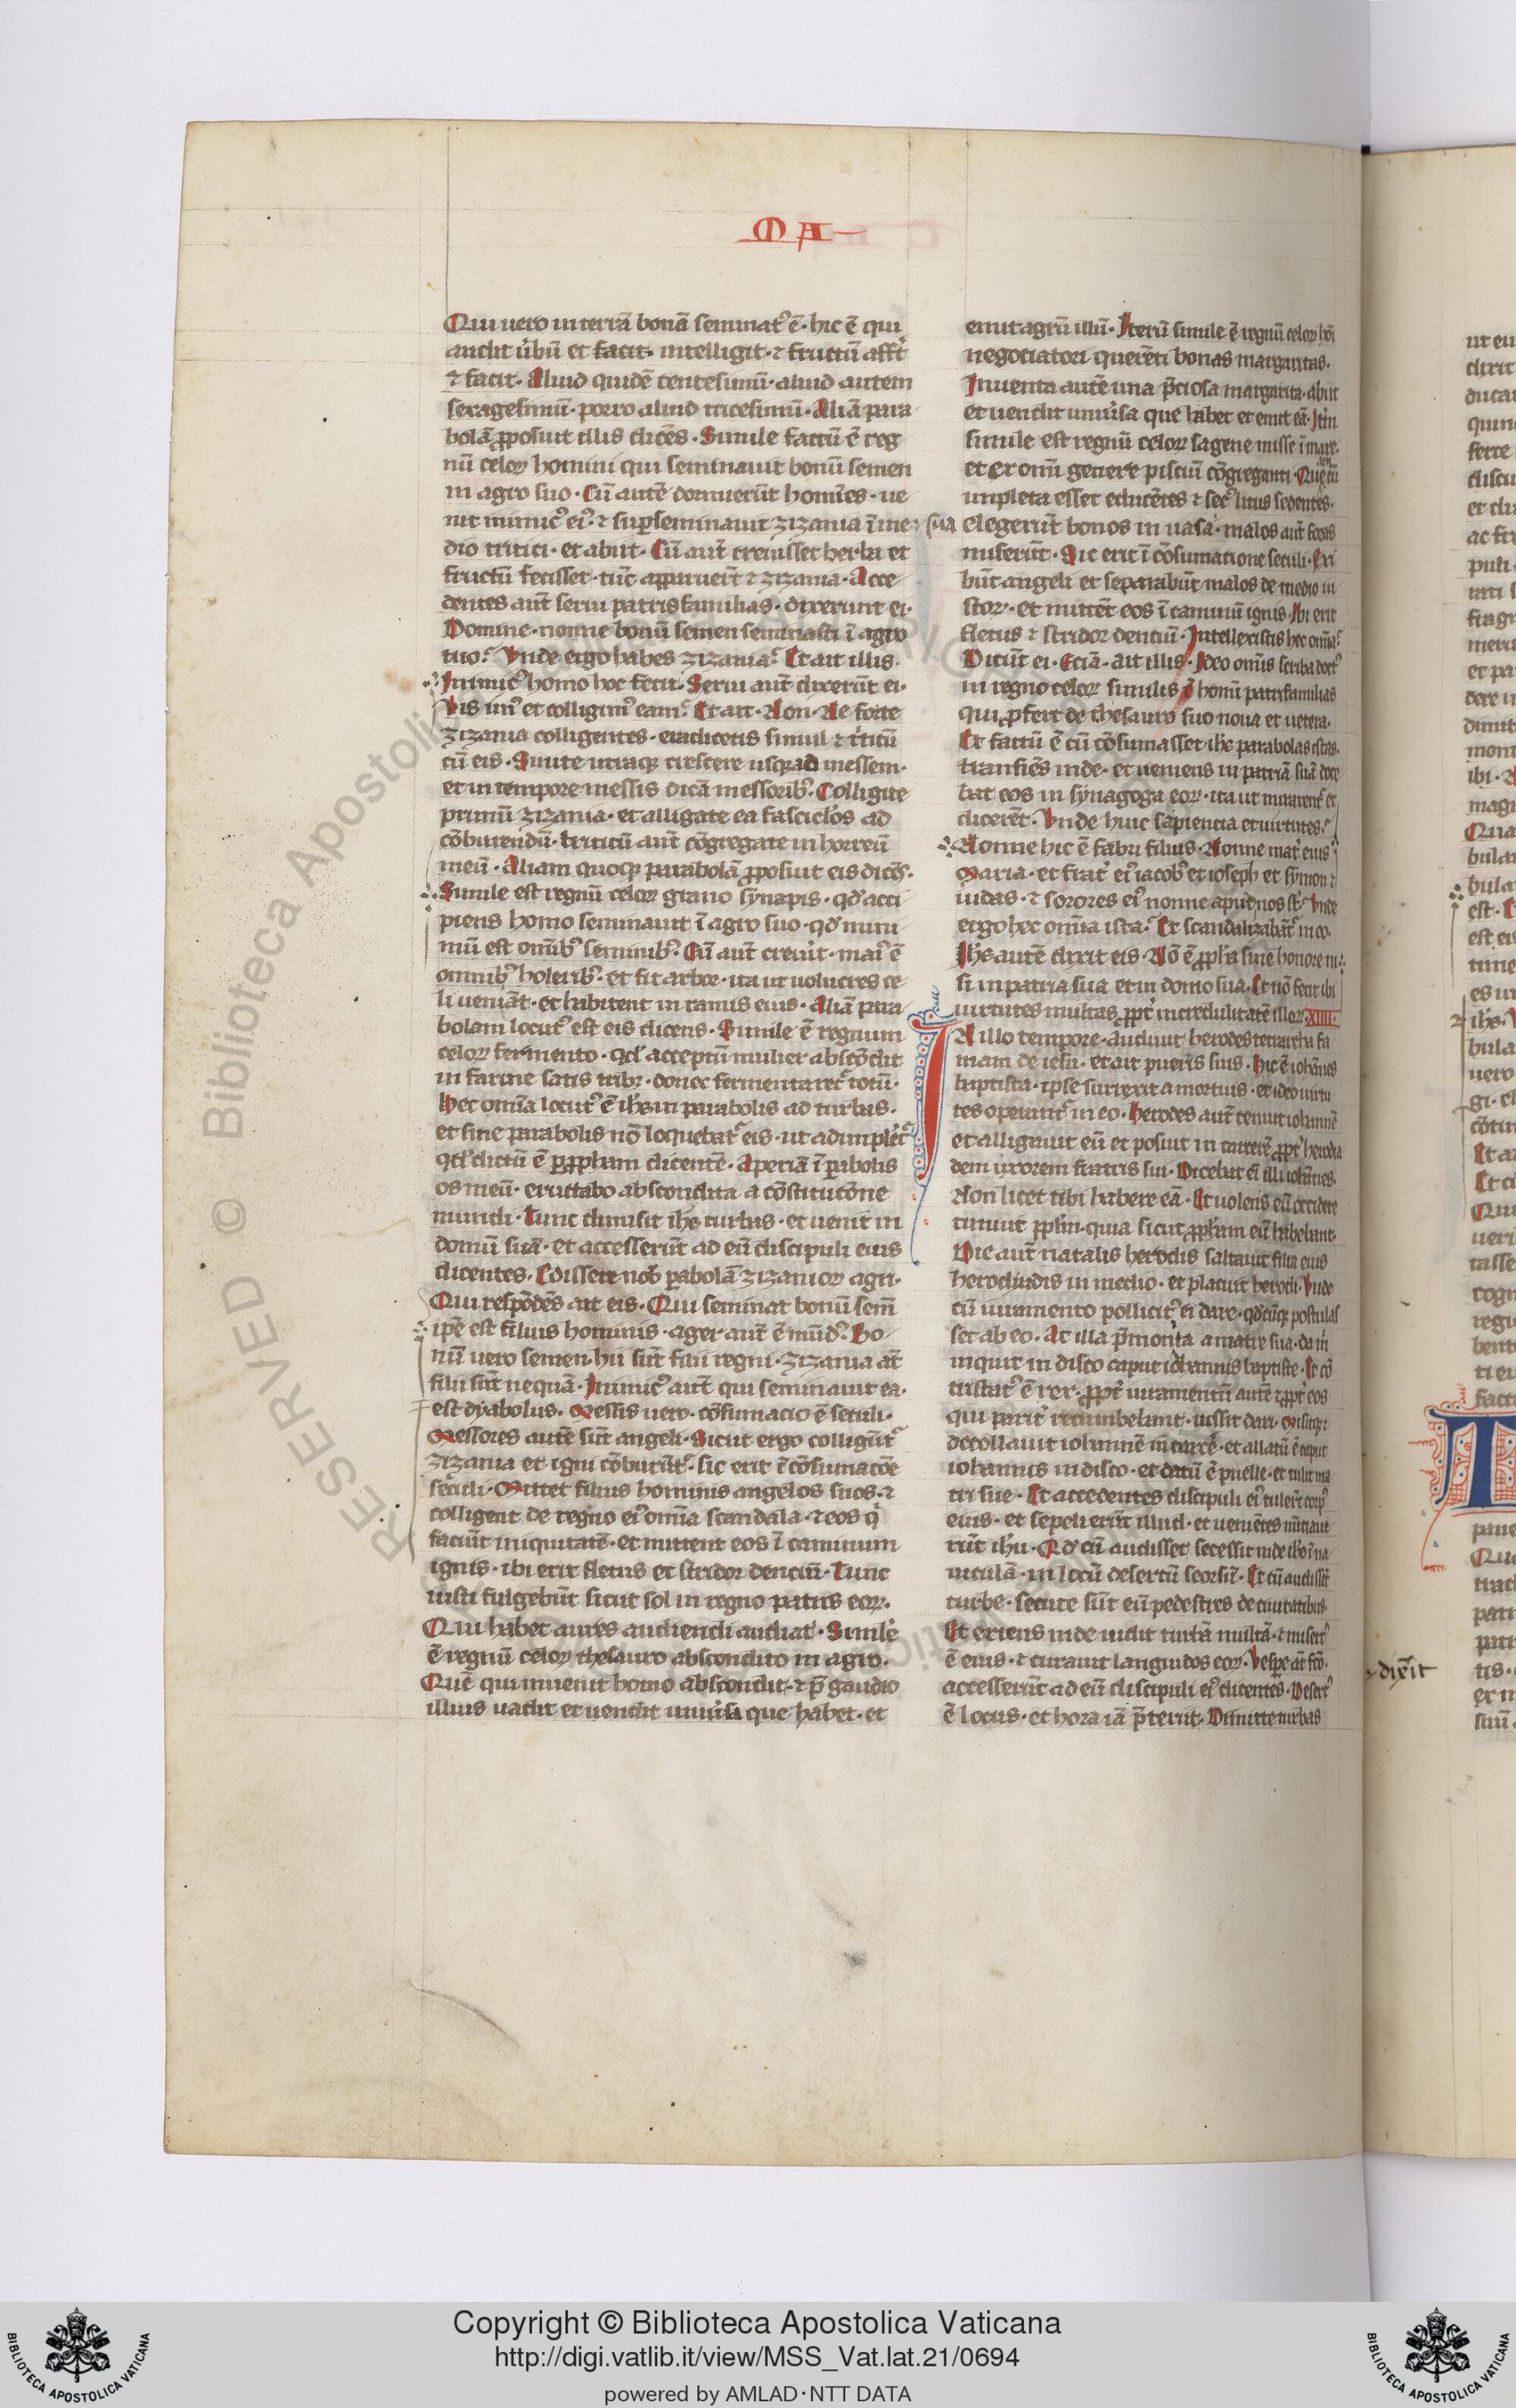 MA
Qui uero in terrā bonā seminatꝰ ē · hic ē qui
audit u̇bū et facit · intelligit · ⁊ fructū affͭt
⁊ facit · Aliud quidē centesimū · aliud autem
sexagesimū · porro aliud tricesimū · Aliā para
bolā ꝓposuit illis dicēs · Simile factū ē reg
nū celoꝝ homini qui seminauit bonū semen
in agro suo · Cū autē dormierūt homīes · ue
nit inimicꝰ eiꝰ · ⁊ suꝑseminauit zizania ī me
dio tritici · et abiit · Cū aut̄ creuisset herba et
fructū fecisset · tūc apparuerūt ⁊ zizania · Acce
dentes aut̄ serui patris familias · dixerunt ei ·
Domine · nonne bonū semen seminasti ī agro
tuo · Vnde ergo habes zizania · Et ait illis ·
Inimicꝰ homo hoc fecit · Serui aut̄ dixerūt ei ·
Vis imꝰ et colligimꝰ eam · Et ait · Non · Ne forte
zizania colligentes · eradicetis simul ⁊ t̄ticū
cū eis · Sinite utraqꝫ crescere usqꝫ ad messem ·
et in tempore messis dicā messoribꝰ · Colligite
primū zizania · et alligate ea fasciclos ad
cōburendū · triticū aut̄ cōgregate in horreū
meū · Aliam quoqꝫ parabolā ꝓposuit eis dicēs ·
Simile est regnū celoꝝ grano synapis · qd̓ acci
piens homo seminauit ī agro suo · qd̓ mini
mū est omībꝰ seminibꝰ · Cū aut̄ creuit · maiꝰ ē
omnibꝰ holeribꝰ · et fit arbor · ita ut uolucres ce
li ueniāt · et habitent in ramis eius · Aliā para
bolam locutꝰ est eis dicens · Simile ē regnum
celoꝝ fermento · qd̓ acceptū mulier abscōdit
in farine satis tribꝫ · donec fermentaretᷣ totū ·
hec om̄ia locutꝰ ē ihs̄ in parabolis ad turbas ·
et sine parabolis nō loquebatᷣ eis · ut adimpletᷣ
qd̓ dictū ē ꝑ ꝓpham dicentē · Aperiā ī ꝑabolis
os meū · eructabo abscondita a cōstitutōne
mundi · Tunc dimisit ihs̄ turbas · et uenit in
domū suā · et accesserūt ad eū discipuli eius
dicentes · Edissere nob̄ ꝑabolā zizanioꝝ agri ·
Qui respōdēs ait eis · Qui seminat bonū sem̄
ip̄e est filius hominis · ager aut̄ ē mūdꝰ · Bo
nū uero semen · hii sūt filii regni · zizania at̄
filii sūt nequā · Inimicꝰ aut̄ qui seminauit ea ·
est dyabolus · Messis uero · cōsumacio ē seculi ·
Messores autē sūt angeli · Sicut ergo colligūtᷣ
zizania et igni cōburūtᷣ · sic erit ī cōsumacōe
seculi · Mittet filius hominis angelos suos · ⁊
colligent de regno eiꝰ om̄ia scandala · ⁊ eos q̇
faciūt iniquitatē · et mittent eos ī caminum
ignis · ibi erit fletus et stridor denciū · Tunc
iusti fulgebūt sicut sol in regno patris eoꝝ ·
Qui habet aures audiendi audiat · Simile
ē regnū celoꝝ thesauro abscondito in agro ·
Quē qui inuenit homo abscondit · ⁊ p̄ gaudio
illius uadit et uendit uniu̇sa que habet · et
emit agrū illū · Iterū simile ē regnū celoꝝ hōi
negociatori querēti bonas margaritas ·
Inuenta autē una p̄ciosa margarita · abiit
et uendit uniu̇sa que habet et emit eā · Itm̄
simile est regnū celoꝝ sagene misse ī mare ·
et ex omni genere pisciū cōgreganti · Que cū
impleta esset educētes ⁊ secꝰ litus sedentes ·
sua elegerūt bonos in uasa · malos aut̄ foras
miserūt · Sic erit ī cōsumatione seculi · Exi
būt angeli et separabūt malos de medio iu
stoꝝ · et mittēt eos ī caminū ignis · Ibi erit
fletus ⁊ stridor dentiū · Intellexistis hec om̄ia
Dicūt ei · Eciā · Ait illis · Ideo omīs scriba doctꝰ
in regno celoꝝ similis ē homī patrifamilias
qui ꝓfert de thesauro suo noua et uetera ·
Et factū ē cū cōsumasset ihc̄ parabolas istas ·
transiēs inde · et ueniens in patriā suā doce
bat eos in synagoga eoꝝ · ita ut mirarentᷣ et
dicerēt · Vnde huic sapiencia et uirtutes ·
Nonne hic ē fabri filius · Nonne mat̄ eius
Maria · et fratr̄ eiꝰ iacobꝰ et ioseph et symon ⁊
iudas · ⁊ sorores eiꝰ nonne apud nos sūt · Vnde
ergo hec om̄ia ista · Et scandalizabātᷣ in eo ·
Ihs̄ autē dixit eis · Nō ē ꝓph̄a sine honore ni
si in patria sua et in domo sua · Et nō fecit ibi
uirtutes multas ꝓpt̄ incredulitatē illoꝝ · XIIII ·
In illo tempore · audiuit herodes tetrarcha fa
mam de iesu · et ait pueris suis · hic ē iohānes
baptista · ipse surrexit a mortuis · et ideo uirtu
tes operantᷣ in eo · Herodes aut̄ tenuit iohannē
et alligauit eū et posuit in carcerē ꝓpt̄ herodia
dem uxorem fratris sui · Dicebat eī illi iohānes ·
Non licet tibi habere eā · Et uolens eū occidere
timuit pplm̄ · quia sicut ꝓpham eū habebant ·
Die aut̄ natalis herodis saltauit filia eius
herodiadis in medio · et placuit herodi · Vnde
cū iuramento pollicitꝰ ē ei dare · qd̓cūqꝫ postulas
set ab eo · At illa p̄monita a matre sua · da m̄
inquit in disco caput iohannis baptiste · Et cō
tristatꝰ ē rex · ꝓpt̄ iuramentū autē ⁊ ꝓpt̄ eos
qui parit̄ recumbebant · iussit dari · Misitqꝫ ⁊
decollauit iohannē in carcē · et allatū ē caput
iohannis in disco · et datū ē puelle · et tulit ma
tri sue · Et accedentes discipuli eiꝰ tulert̄ corpꝰ
eius · et sepelierūt illud · et ueniētes nūciaue
rūt ihu̅ · Qd̓ cū audisset secessit inde ihs̄ ī na
uiculā · in locū desertū seorsū · Et cū audissēt
turbe · secute sūt eū pedestres de ciuitatibus ·
Et exiens inde uidit turbā multā · ⁊ misertꝰ
ē eius · ⁊ curauit languidos eoꝝ · Vespe aut̄ fc̄o ·
accesserūt ad eū discipuli eiꝰ dicentes · Desertꝰ
ē locus · et hora iā p̄teriit · Dimitte turbas
dix̄it
RESERVED © Biblioteca Apostolica Vaticana
Copyright © Biblioteca Apostolica Vaticana
http://digi.vatlib.it/view/MSS_Vat.lat.21/0694
powered by AMLAD·NTT DATA
BIBLIOTECA APOSTOLICA VATICANA
BIBLIOTECA APOSTOLICA VATICANA